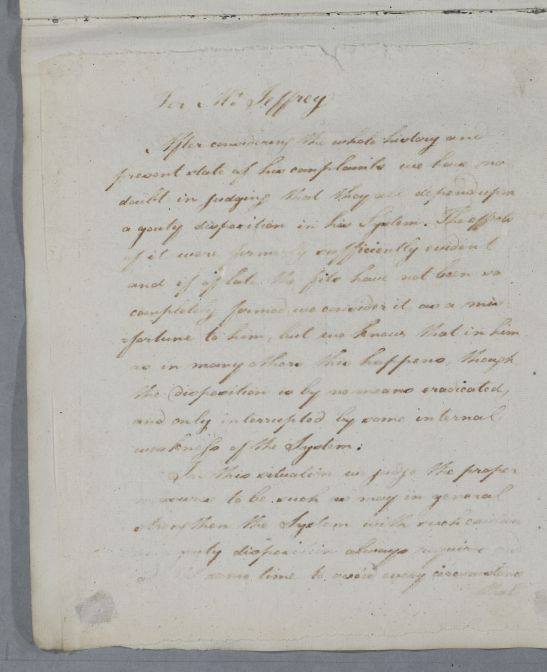 For Mr. Jeffrey
After considering the whole history and
present state of his complaints we have no
doubt in judging that they all depend upon
a gouty disposition in his System. The effects
of it were formerly sufficiently evident
and if of late the fits have not been so
completely formed we consider it as a mis-
fortune to him, but we know that in him
as in many others this happens, though
the disposition is by no means eradicated,
and only interrupted by some internal
weakness of the System.
In this situation we judge the proper
measures to be such as may in general
strengthen the System with such caution
gouty disposition always requires and
same time to avoid every circumstance
that